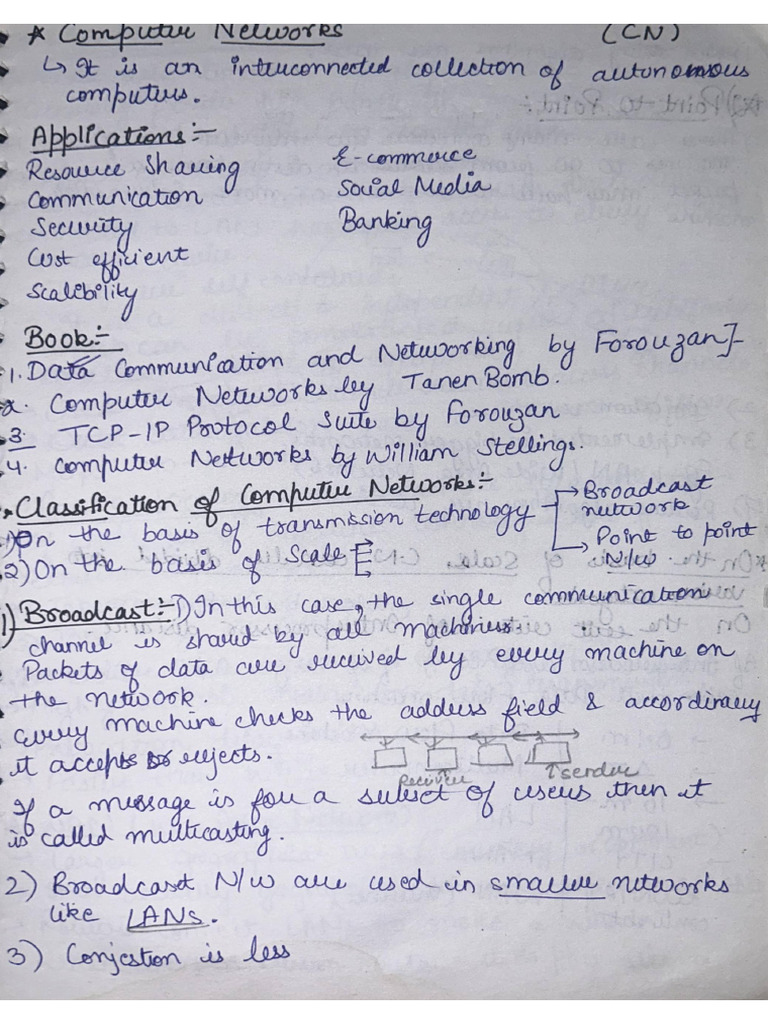 * Computer Networks (CN)
↳ It is an interconnected collection of autonomous
computers.
Applications:-
Resource Sharing
Communication
Security
Cost efficient
Scalebility
E-commerce
Social Media
Banking
Book:-
1. Data Communication and Networking by Forouzan]-
2. Computer Networks by Tanen Bomb.
3. TCP-IP Protocol Suite by Forouzan
4. Computer Networks by William Stellings.
Classification of Computer Networks:-
1) On the basis of transmission technology → Broadcast network
→ Point to point N/w.
2) On the basis of Scale
1) Broadcast:- 1) In this case, the single communication
channel is shared by all machines
Packets of data are received by every machine on
the network.
Every machine checks the address field & accordinaly
it accepts or rejects.
Receiver ↑sender
If a message is for a subset of users then it
is called multicasting.
2) Broadcast N/w are used in smaller networks
like LANs.
3) Conjestion is less